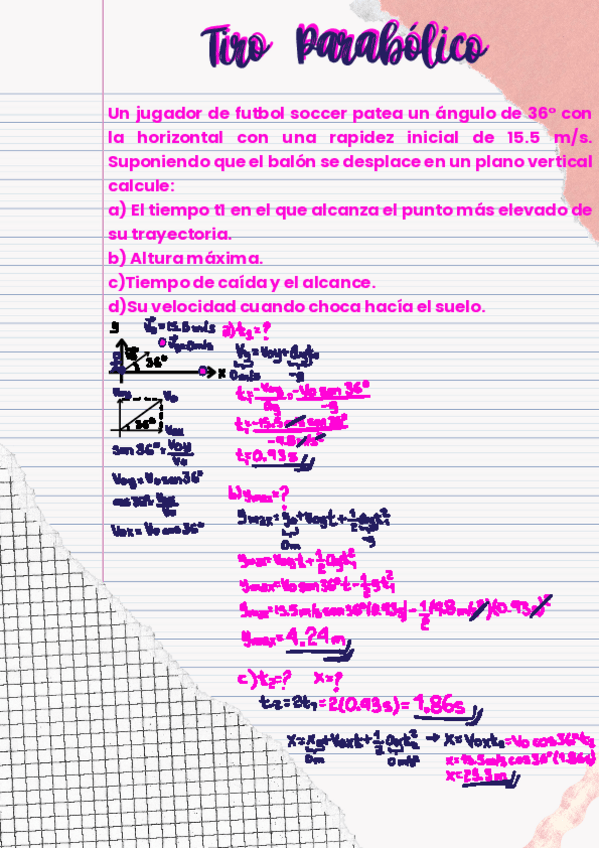 Tiro Parabólico
Un jugador de futbol soccer patea un ángulo de 36° con
la horizontal con una rapidez inicial de 15.5 m/s.
Suponiendo que el balón se desplace en un plano vertical
calcule:
a) El tiempo t1 en el que alcanza el punto más elevado de
su trayectoria.
b) Altura máxima.
c)Tiempo de caída y el alcance.
d)Su velocidad cuando choca hacía el suelo.
y
V₀=15.5m/s
Vy=0m/s
36°
x
Voy
Vo
36°
Vox
sen 36°=Voy/Vo
Voy=Vosen36°
cos36°=Vox/Vo
Vox=Vocos36°
a)t₁=?
Vy=Voy+ayt₁
0m/s -g
t₁=-Voy/ay=-Vosen36°/-g
t₁=-15.5m/s sen36°/-9.8m/s²
t₁=0.93s
b)ymax=?
ymax=yo+Voyt+1/2ayt₁²
0m -g
ymax=Voyt+1/2ayt₁²
ymax=Vosen36°t-1/2gt₁²
ymax=15.5m/s sen36°(0.93s)-1/2(9.8m/s²)(0.93s)²
ymax=4.24m
c)t₂=? x=?
t₂=2t₁=2(0.93s)=1.86s
x=xo+Voxt+1/2axt₂² → x=Voxt₂=Vocos36°t₂
0m 0m/s²
x=15.5m/s cos36°(1.86s)
x=23.3m